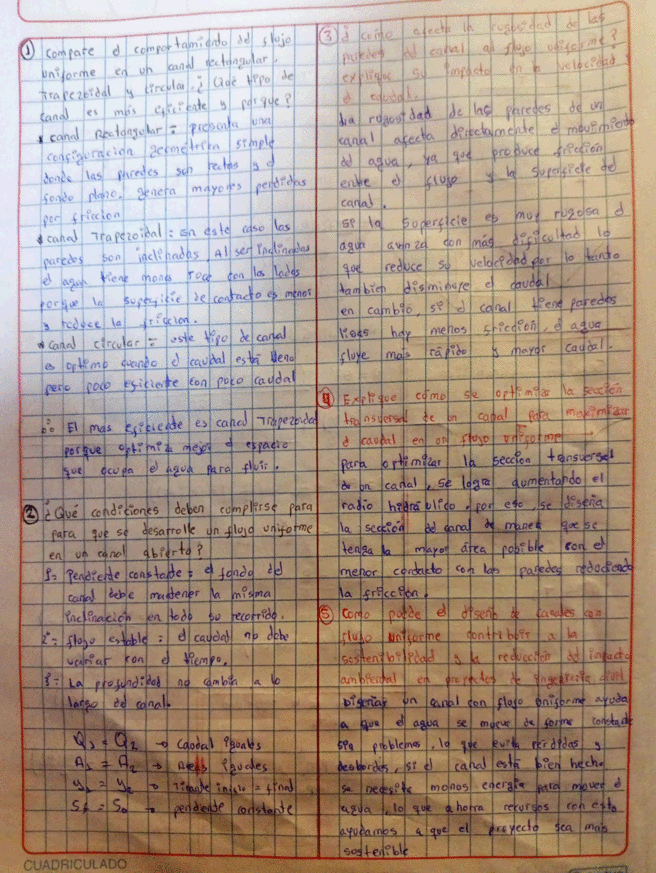 ① Compare el comportamiento del flujo
uniforme en un canal rectangular.
Trapezoidal y circular. ¿Qué tipo de
canal es más eficiente y por que?
* canal Rectangular = presenta una
configuracion geometrica simple
donde las paredes son rectas y el
fondo plano. genera mayores perdidas
por friccion
* canal Trapezoidal: en este caso las
paredes son inclinadas. Al ser inclinadas
el agua tiene menos roce con los lados
porque la superficie de contacto es menor
y reduce la friccion.
* canal circular = este tipo de canal
es optimo cuando el caudal está lleno
pero poco eficiente con poco caudal
∴ El mas eficiente es canal Trapezoidal
porque optimiza mejor el espacio
que ocupa el agua para fluir.
② ¿Qué condiciones deben cumplirse para
para que se desarrolle un flujo uniforme
en un canal abierto?
1= Pendiente constante = el fondo del
canal debe mantener la misma
inclinación en todo su recorrido.
2= flujo estable = el caudal no debe
variar con el tiempo.
3= La profundidad no cambia a lo
largo del canal.
Q1 = Q2 → Caudal iguales
A1 = A2 → Areas iguales
y1 = y2 → Tirante inicio = final
Sf = So → pendiente constante
③ ¿ como afecta la rugosidad de las
paredes del canal al flujo uniforme?
explique su impacto en la velocidad y
el caudal.
La rugosidad de las paredes de un
canal afecta directamente el movimiento
del agua, ya que produce fricción
entre el flujo y la superficie del
canal.
si la superficie es muy rugosa el
agua avanza con más dificultad lo
que reduce su velocidad por lo tanto
tambien disminuye el caudal
en cambio, si el canal tiene paredes
lisas hay menos fricción, el agua
fluye más rápido y mayor caudal.
④ Explique cómo se optimizar la sección
transversal de un canal para maximizar
el caudal en un flujo uniforme
para optimizar la sección transversal
de un canal, se logra aumentando el
radio hidráulico, por eso, se diseña
la sección del canal de manera que se
tenga la mayor área posible con el
menor contacto con las paredes reduciendo
la fricción.
⑤ Como puede el diseño de canales con
flujo uniforme contribuir a la
sostenibilidad y la reducción del impacto
ambiental en proyectos de ingeniería civil
Diseñar un canal con flujo uniforme ayuda
a que el agua se mueva de forma constante
sin problemas, lo que evita perdidas y
desbordes, si el canal está bien hecho
se necesita menos energía para mover el
agua, lo que ahorra recursos con esto
ayudamos a que el proyecto sea más
sostenible
CUADRICULADO